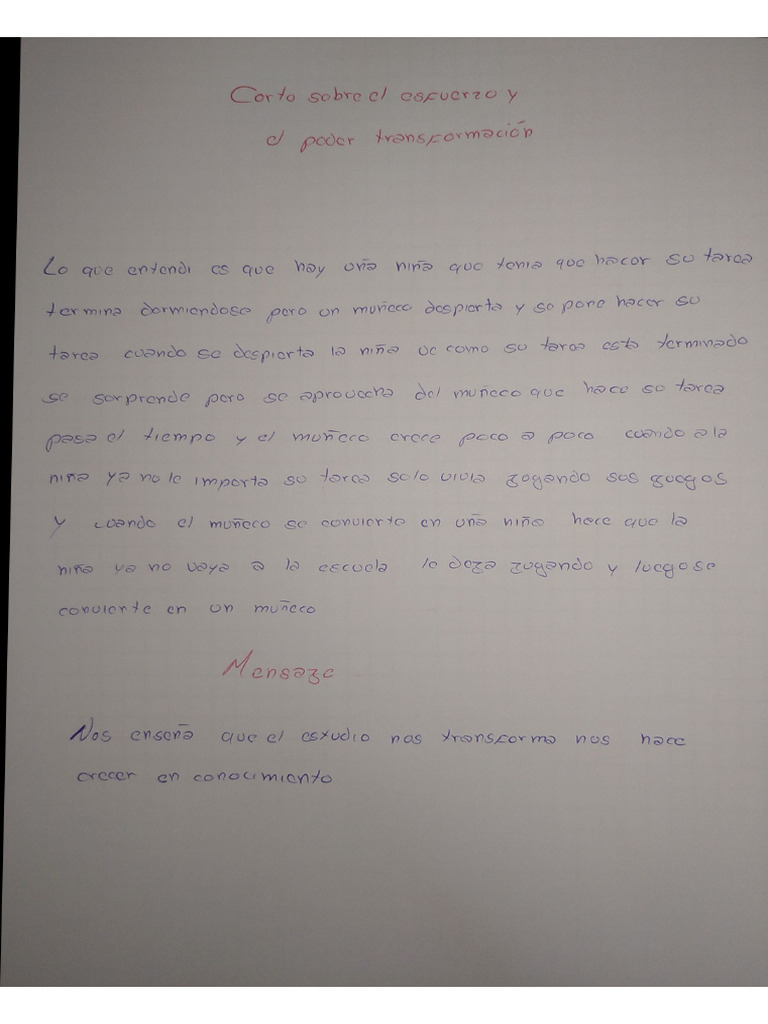 Corto sobre el esfuerzo y
el poder transformación
Lo que entendi es que hay uña niña que tenia que hacer su tarea
termina dormiendose pero un muñeco despierta y se pone hacer su
tarea cuando se despierta la niña ve como su tarea esta terminado
se sorprende pero se aprovecha del muñeco que hace su tarea
pasa el tiempo y el muñeco crece poco a poco cuando a la
niña ya no le importa su tarea solo vivia zogando sus guegos
y cuando el muñeco se convierte en uña niña hace que la
niña ya no vaya a la escuela la deza zugando y luego se
convierte en un muñeco
Mensaze
Nos enseña que el estudio nos transforma nos hace
crecer en conocimiento